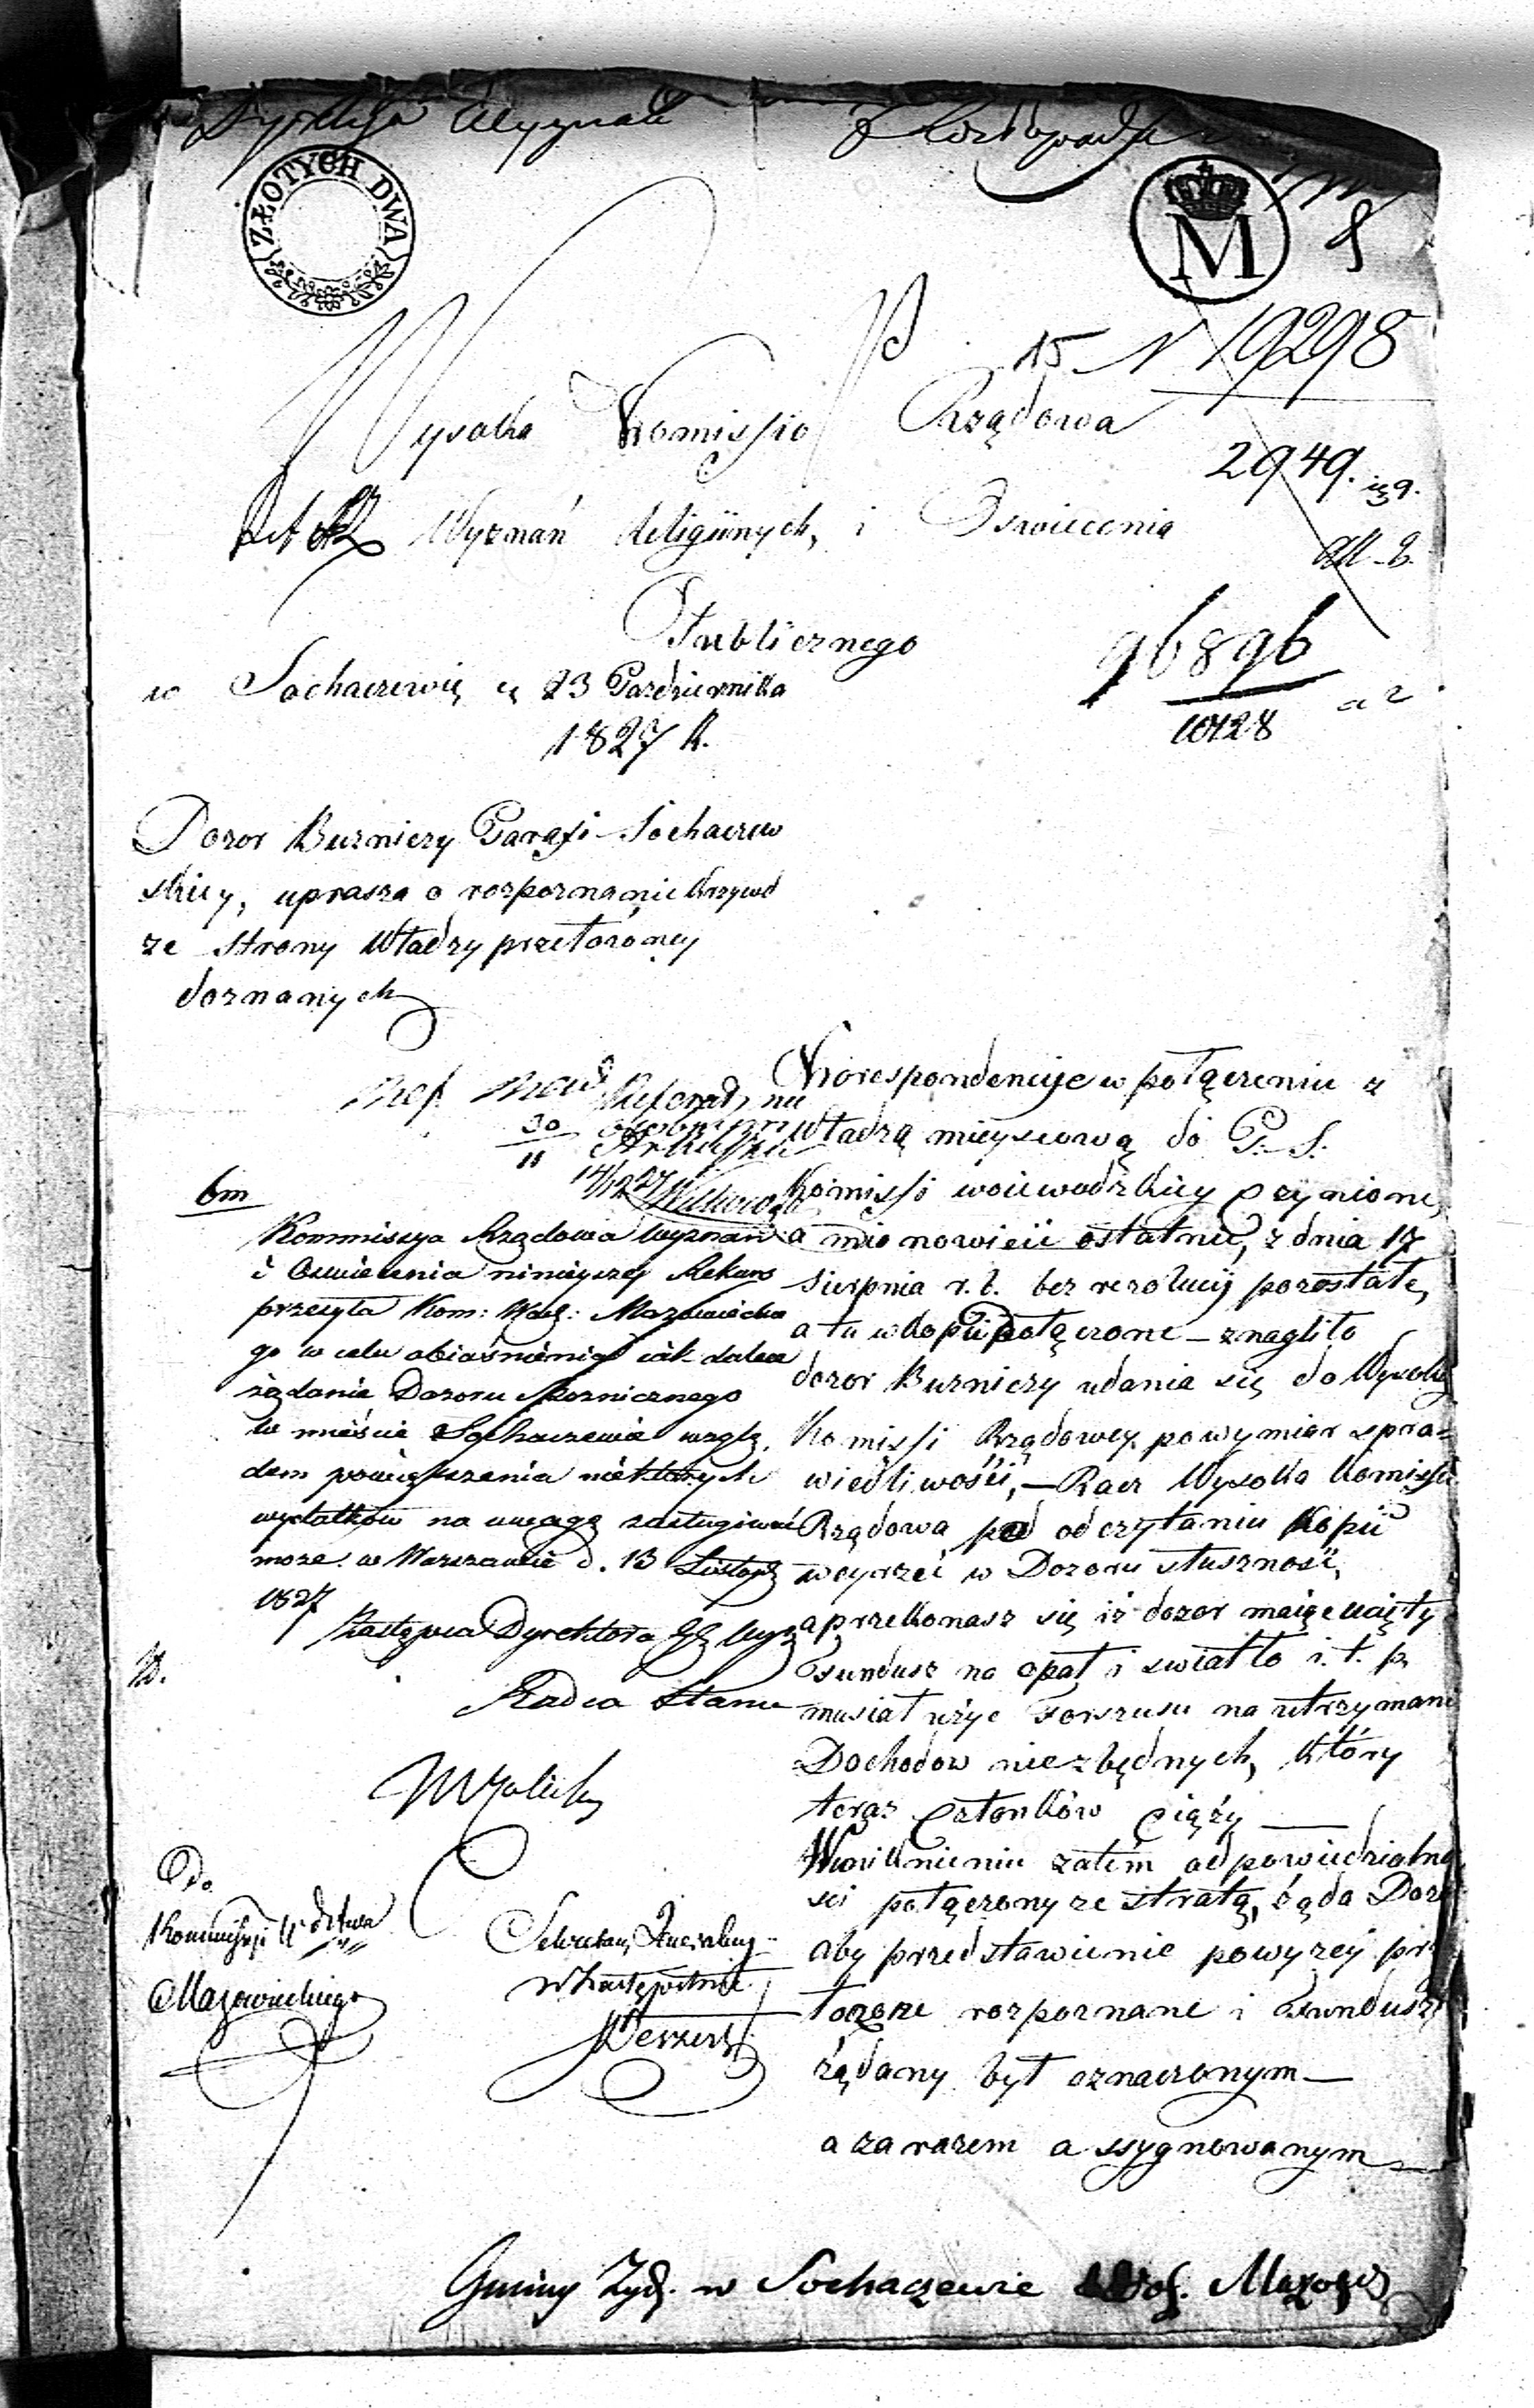 Listopada
ZŁOTYCH DWA
M
8
15 N 19298
Wysoka Kommissio Rządowa
2949.
Wyznań Religiinych, i Oswiecenia
Publicznego
96896
10728
w Sochaczewię d 23 Pazdziernika
1827 R.
Dozor Buzniczy Parafi Sochaczew
skiey, uprasza o rozpoznanie krzywd
ze strony Władzy przełozoney
doznanych
Korespondencyje w połączeniu z
Władzą mieyscową do P. S.
Komissi woiewodzkiey czynione,
a mionowicie ostatnie, z dnia 17
Sierpnia r. b. bez rezolucij pozostałe,
a tu w kopii połączone – znagliło
dozor Buzniczy udania się do Wysokiey
Komissi Rządowey, po wymiar spra-
wiedliwośći, – Racz Wysoka Komissio
Rządowa po odczytaniu Kopii
weyrzeć w Dozoru słusznosć,
a przekonasz się iż dozor maiąc ucięty
Fundusz na opał i swiatło i. t. p.
musiał użyc Forszusu na utrzymani
Dochodow niezbędnych, który
teraz Członków ciąży
W uniknieniu zatém odpowiedzialno
sci połączony ze stratą, żąda Dozo
aby przedstawienie powyzey prz
łozone rozpoznane i Fundusz
żądany był oznaczonym –
a zarazem assygnowanym
30
11
bm
Kommissya Rządowa Wyznań
i Oswiecenia ninieyszy Rekurs
przesyła Kom: Woj: Mazowieckie
go w celu obiaśnienia iak dalece
żądanie Dozoru Bóżnicznego
w mieście Sochaczewie wzglę,
dem powiększenia niektórych
wydatków na uwagę zasługiwać
może. w Warszawie d. 13 Listopd
1827
Zastępca Dyrektora
Radca Stanu
Do
Kommissyi
Mazowieckiego
Sekretarz Jeneralny
w Zastępstwie
Gminy Żyd. w Sochaczewie Woj. Mazow